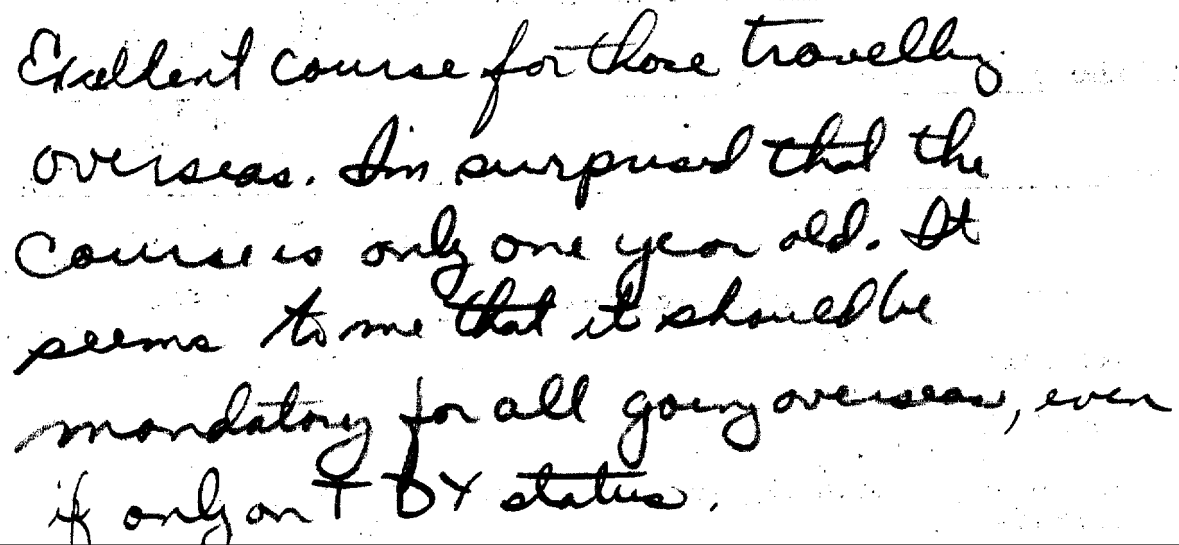 Excellent course for those travelling
overseas. I'm surprised that the
course is only one year old. It
seems to me that it should be
mandatory for all going overseas, even
if only on TDY status.